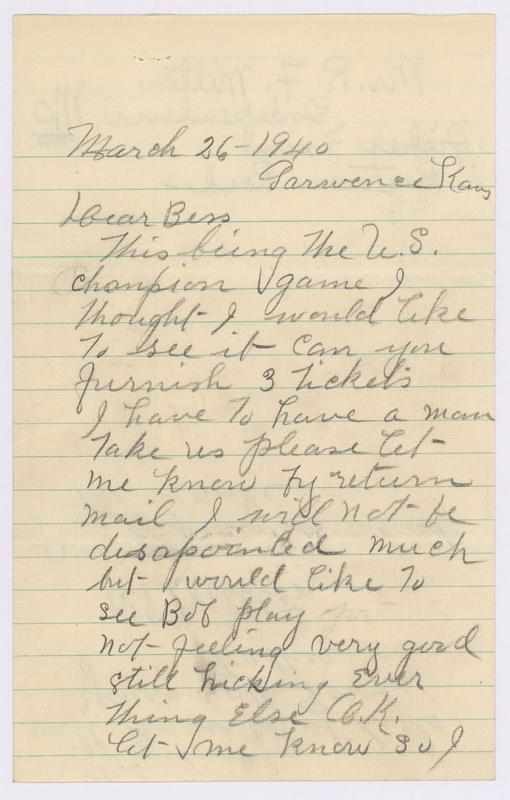 March 26-1940
Larwence Kans
Dear Bess
This being the U.S.
chanpion game I
thought I would like
to see it can you
furnish 3 tickets
I have to have a man
take us please let
me know by return
mail I will not be
disapointed much
but would like to
see Bob play
not feeling very good
still kicking Ever
thing Else O.K.
let me know so I